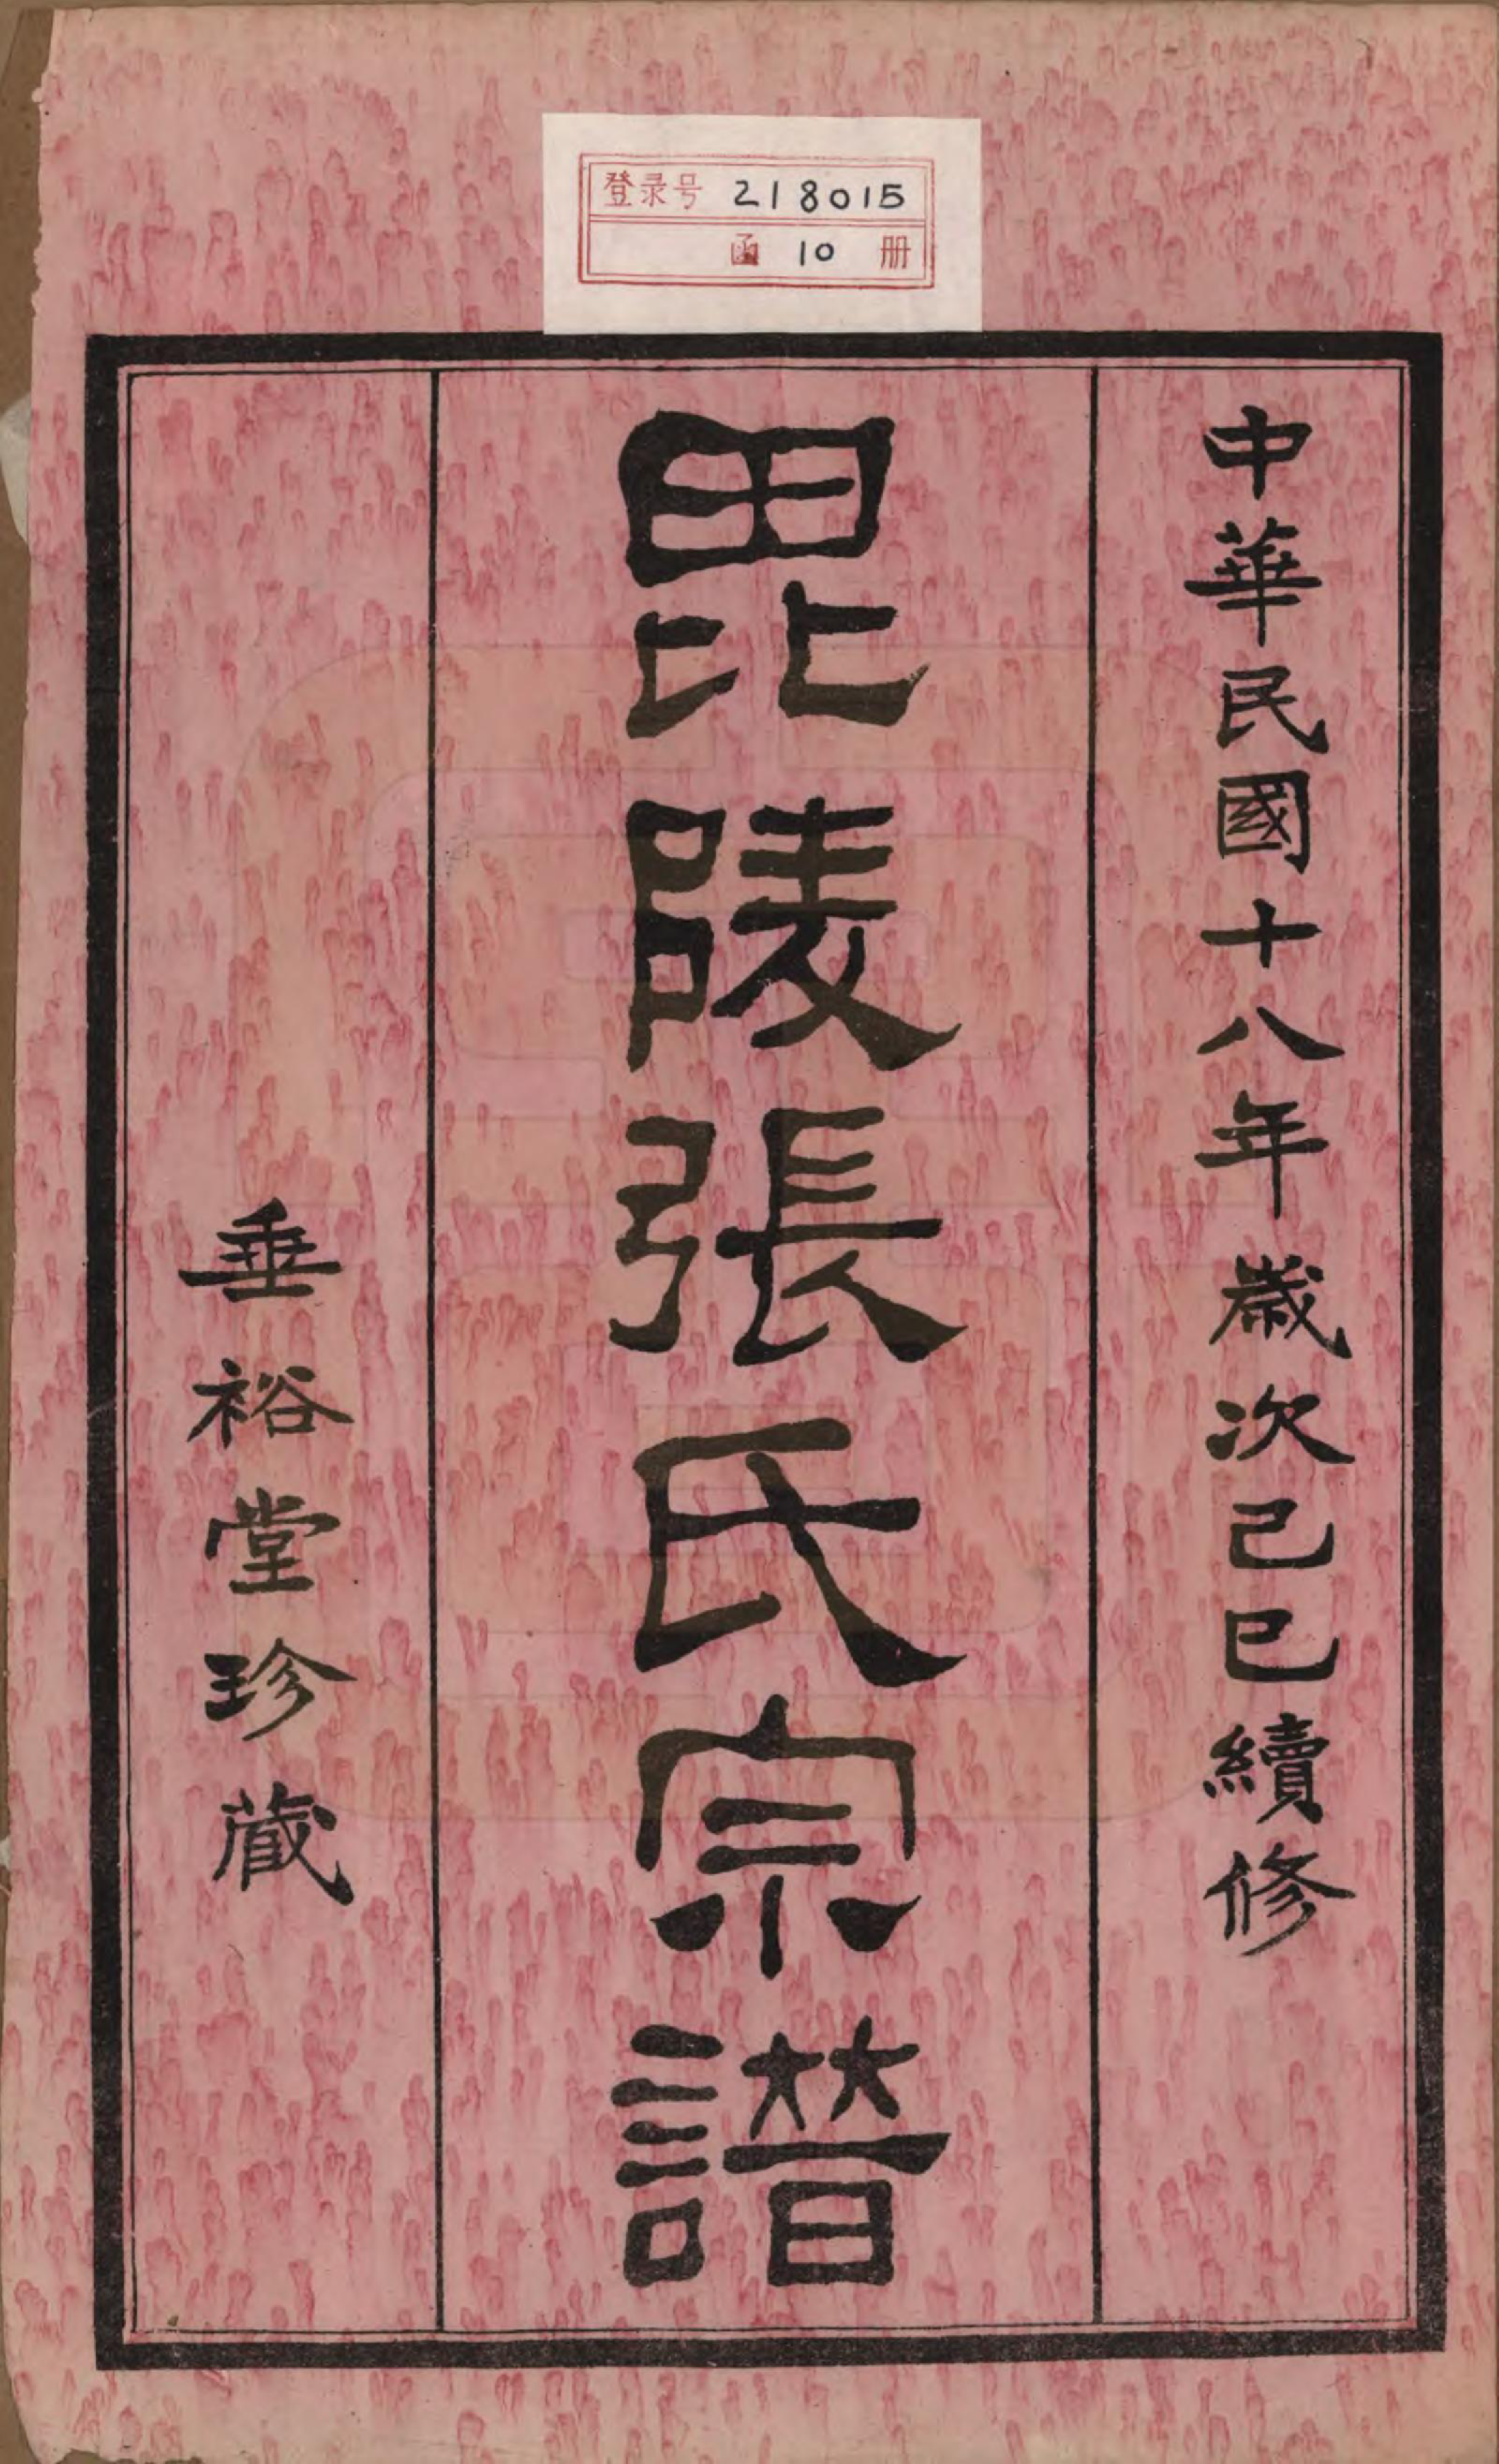 登录号 218015
函 10 册
中華民國十八年歲次己巳續修
毘陵張氏宗譜
垂裕堂珍藏